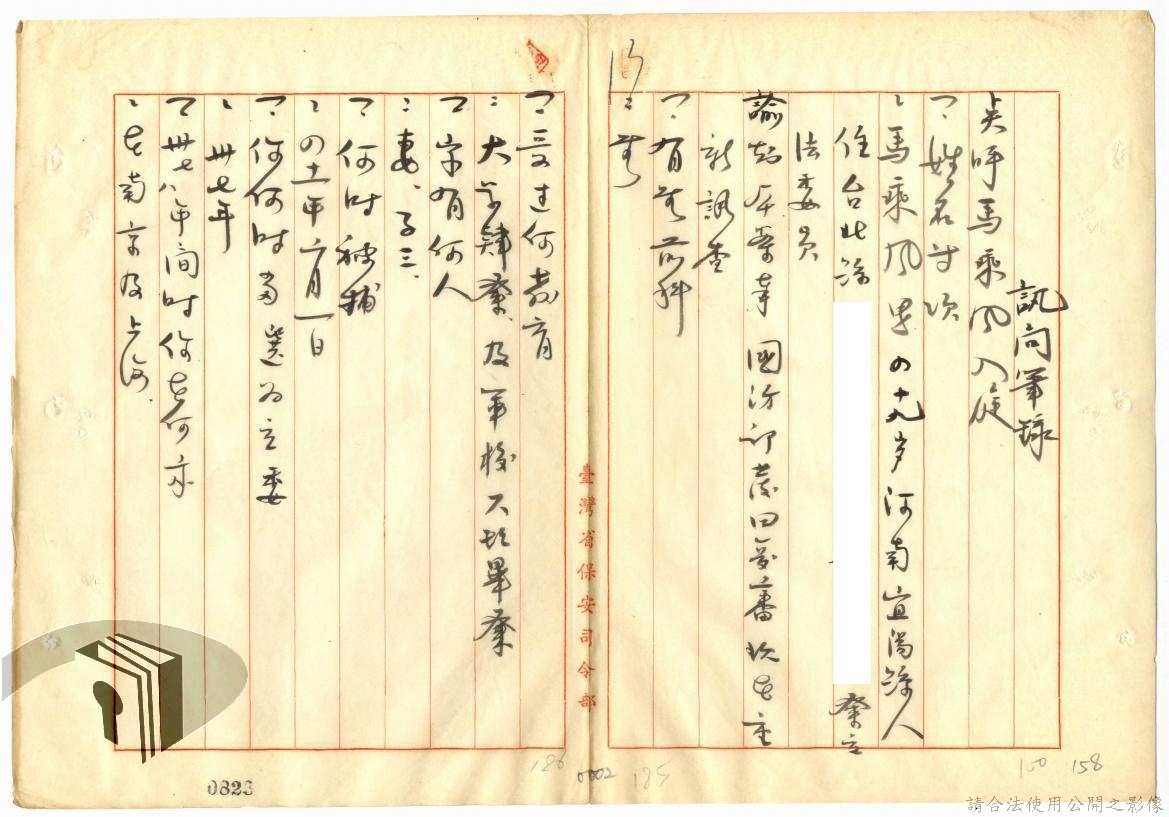 訊問筆錄
點呼馬乘風入庭
問：姓名年次
答：馬乘風男四十九歲河南宜陽縣人
住台北縣 業立
法委員
諭知本案奉國防部發回更審現在重
新訊查
問：有無前科
答：無
問：受過何教育
答：大學肄業及軍校六期畢業
問：家有何人
答：妻、子三、
問：何時被捕
答：四十一年六月一日
問：你何時當選為立委
答：卅七年
問：卅七八年間時你在何處
答：在南京及上海、
臺灣省保安司令部
0823
0002
186
185
150
158
請合法使用公開之影像